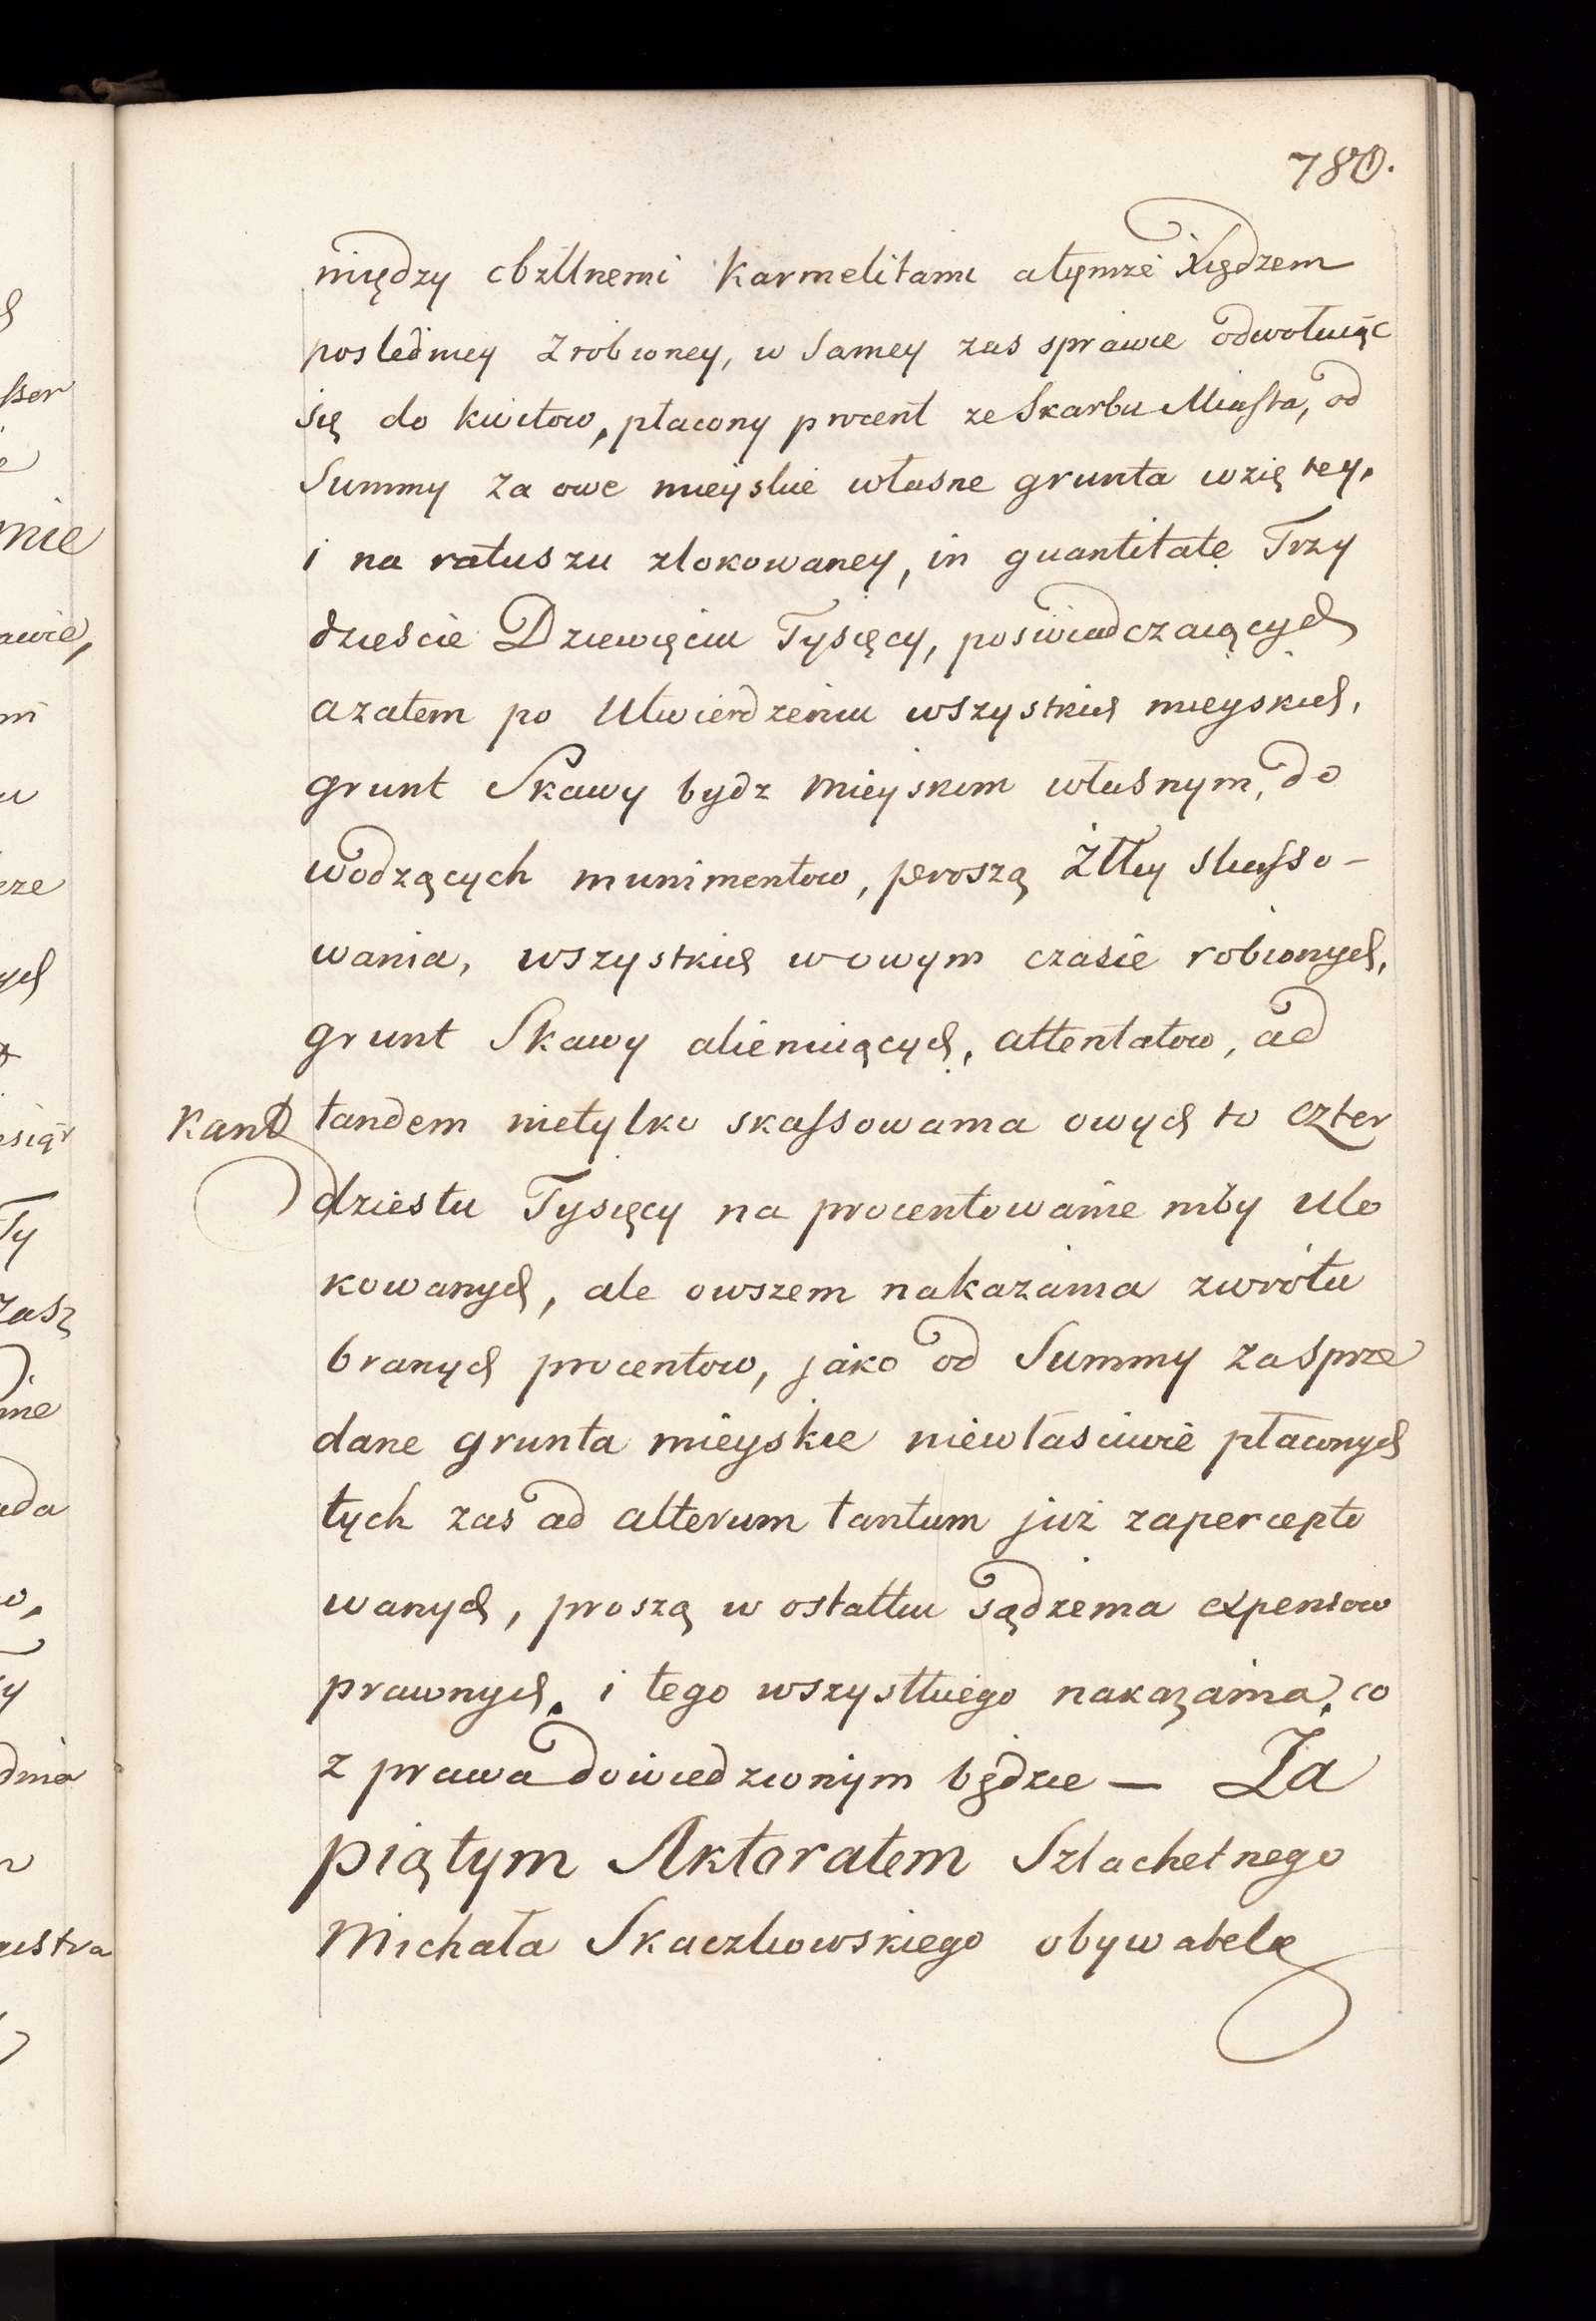 780.
między obżłłnemi Karmelitami atymże Xiędzem
posledniey zrobioney, w Samey zas sprawie odwołuiąc
się do kwitow, płacony procent ze Skarbu Miasta, od
Summy za owe mieyskie własne grunta wzię tey,
i na ratuszu zlokowaney, in quantitate Trzy
dzieście Dziewięciu Tysięcy, poswiadczaiących
azatem po Utwierdzeniu wszystkich mieyskich,
grunt Skawy bydz mieyskim własnym, do
wodzących munimentow, proszą Żłły skasso-
wania, wszystkich wowym czasie robionych,
grunt Skawy alieniuiących, attentatow, ad
Kant tandem nietylko skassowania owych to czter
dziestu Tysięcy na procentowanie niby ulo
kowanych, ale owszem nakazania zwrótu
branych procentow, jako od Summy za sprze
dane grunta mieyskie niewłasciwie płaconych
tych zas ad alterum tantum już zapercepto
wanych, proszą w ostatku sądzenia expensow
prawnych, i tego wszystkiego nakazania, co
z prawa dowiedzionym będzie — Za
piątym Aktoratem Szlachetnego
Michała Skaczkowskiego obywatela